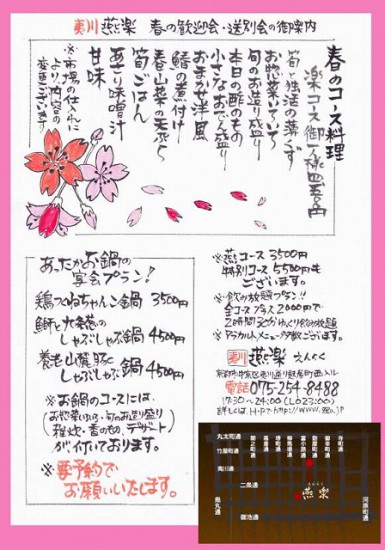 夷川 燕楽 春の歓迎会・送別会の御案内
春のコース料理
楽コース御一人様四五〇〇円
筍と独活の薄くず
お惣菜いろいろ
旬のお造り盛り
本日の酢のもの
小さなおでん盛り
おまかせ洋風
鰆の煮付け
春山菜の天ぷら
筍ごはん
あさり味噌汁
甘味
※市場の仕入れに
より、内容の
変更ございます
あったかお鍋の
宴会プラン!
鶏つくねちゃんこ鍋 3500円
鰤と大根の
しゃぶしゃぶ鍋 4500円
養老山麓豚と
しゃぶしゃぶ鍋 4500円
※お鍋のコースには、
(お惣菜いろいろ・旬のお造り盛り
雑炊・香の物、デザート)
が付いております。
※要予約で
お願いいたします。
※燕コース 3500円
特別コース 5500円も
ございます。
※飲み放題プラン!!
全コースプラス2000円で
2時間30分ゆっくり飲み放題
※アラカルトメニューも多数ございます。
夷川 燕楽 えんらく
京都市中京区夷川通り麩屋町西入ル
電話 075-254-8488
17:30〜24:00(LO23:00)
詳しくは、H・Pで
丸太町通
竹屋町通
夷川通
二条通
御池通
烏丸通
間之町通
高倉通
堺町通
柳馬場通
富小路通
麩屋町通
御幸町通
寺町通
河原町通
燕楽